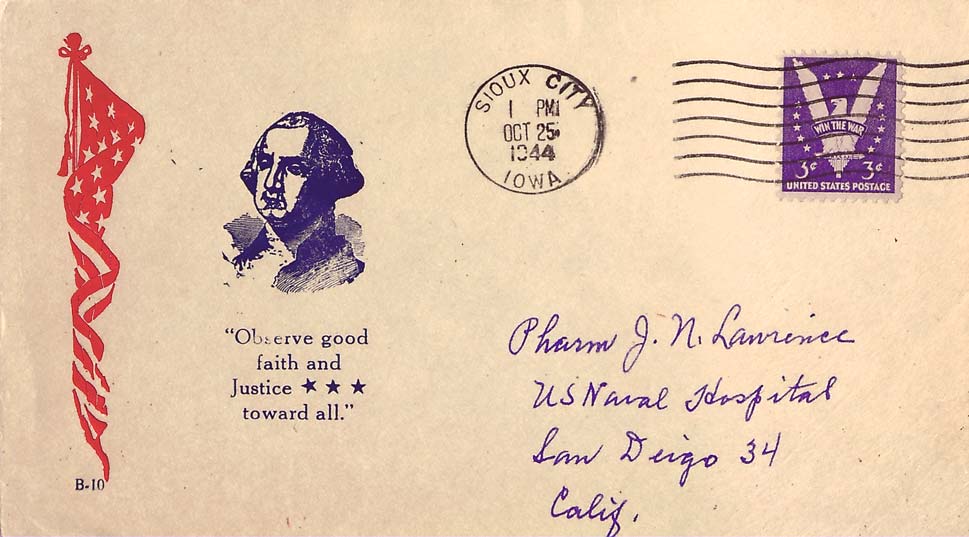 SIOUX CITY
1 PM
OCT 25
1944
IOWA
WIN THE WAR
3¢ 3¢
UNITED STATES POSTAGE
"Observe good
faith and
Justice ★ ★ ★
toward all."
B-10
Pharm J. N. Lawrence
US Naval Hospital
San Deigo 34
Calif.